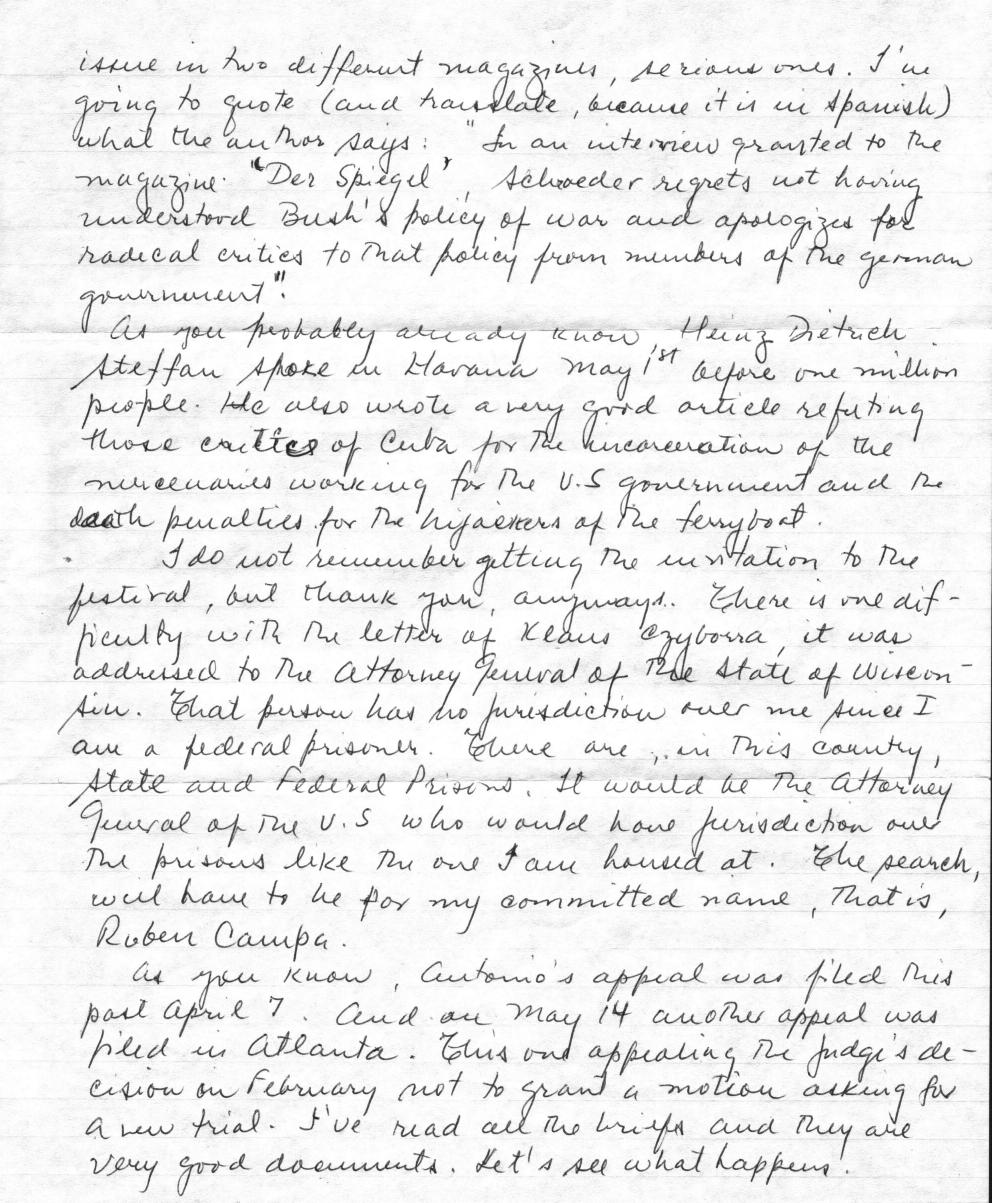 issue in two different magazines, serious ones. I've
going to quote (and translate, because it is in Spanish)
what the author says: "In an interview granted to the
magazine "Der Spiegel", Schroeder regrets not having
understood Bush's policy of war and apologizes for
radical critics to that policy from members of the german
government".
As you probably already know, Heinz Dietrich
Steffan spoke in Havana May 1st before one million
people. He also wrote a very good article refuting
those critics of Cuba for the incarceration of the
mercenaries working for the U.S government and the
death penalties for the hijackers of the ferryboat.
I do not remember getting the invitation to the
festival, but thank you, anyways. There is one dif-
ficulty with the letter of Klaus Czyborra, it was
addressed to the Attorney General of the State of Wiscon-
sin. That person has no jurisdiction over me since I
am a federal prisoner. There are, in this country,
State and Federal Prisons. It would be the Attorney
General of the U.S who would have jurisdiction over
the prisons like the one I am housed at. The search,
will have to be for my committed name, that is,
Ruben Campa.
As you know, Antonio's appeal was filed this
past April 7. And on May 14 another appeal was
filed in Atlanta. This one appealing the judge's de-
cision on February not to grant a motion asking for
a new trial. I've read all the briefs and they are
very good documents. Let's see what happens.